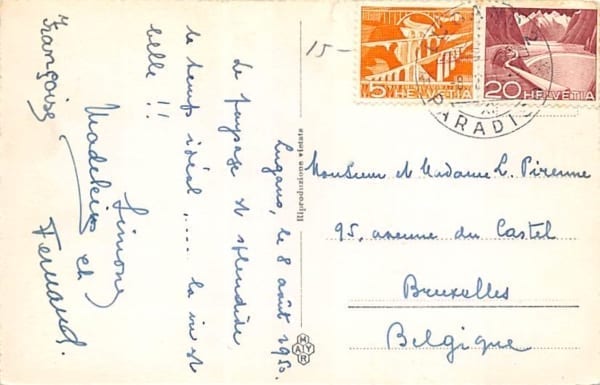 Lugano, le 8 août 1950.
Le paysage est splendide
le temps idéal, .... la vie est
belle !!
Simone
Madeleine et Fernand.
Françoise
15-
5 HELVETIA
20 HELVETIA
PARADISO
Riproduzione vietata
MAYR
Monsieur et Madame L. Pirenne
95, avenue du Castel
Bruxelles
Belgique